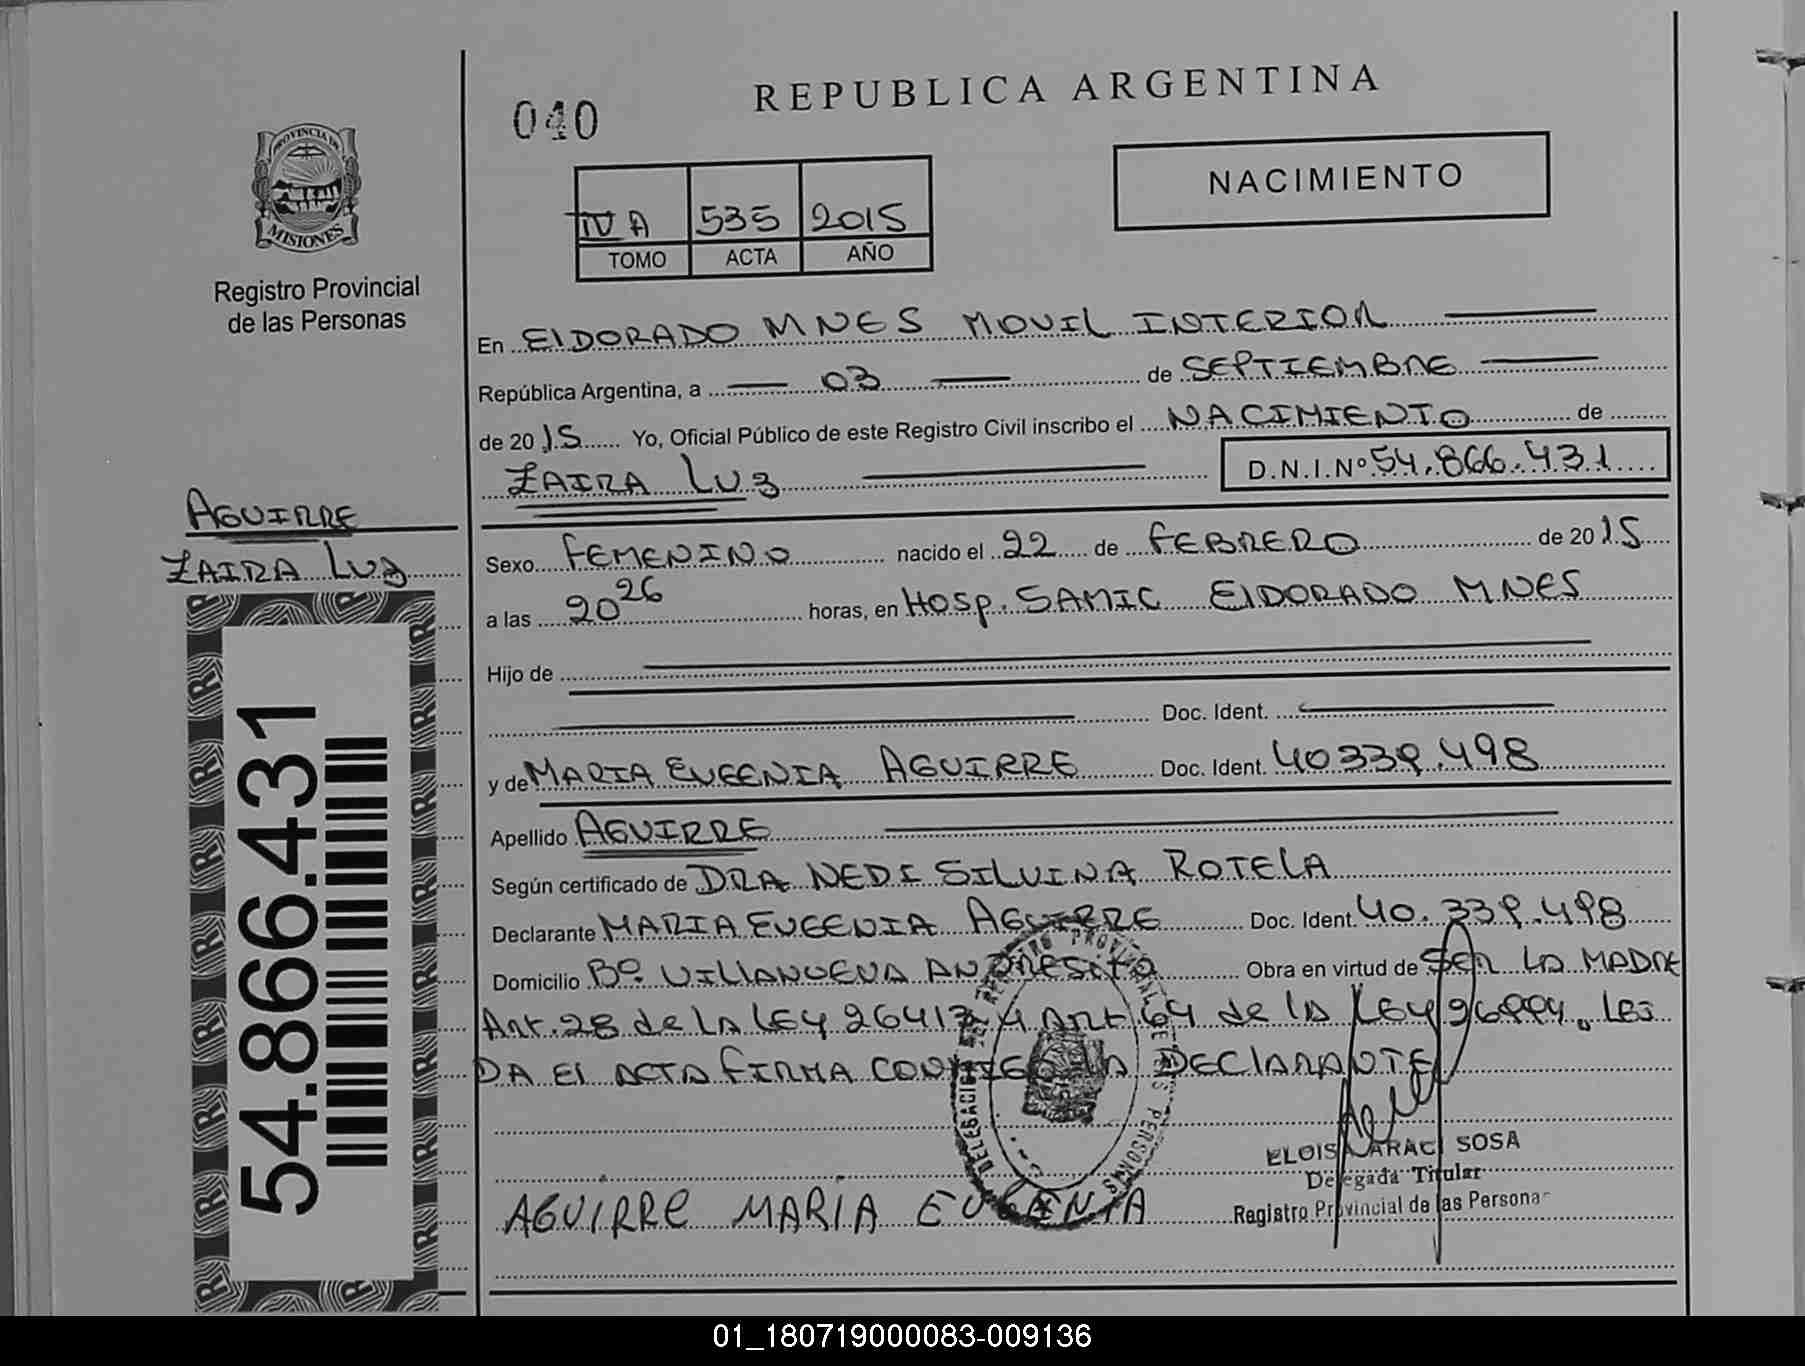 REPUBLICA ARGENTINA
040
NACIMIENTO
IV A 535 2015
TOMO ACTA AÑO
PROVINCIA DE
MISIONES
Registro Provincial
de las Personas
En ElDORADO MNES MOVIL INTERIOR
República Argentina, a 03 de SEPTIEMBRE
de 2015 Yo, Oficial Público de este Registro Civil inscribo el NACIMIENTO de
ZAIRA LUZ D.N.I.Nº 54.866.431
AGUIRRE
ZAIRA LUZ
Sexo FEMENINO nacido el 22 de FEBRERO de 2015
a las 20 26 horas, en Hosp. SAMIC ElDORADO MNES
Hijo de
Doc. Ident.
y de MARIA EUGENIA AGUIRRE Doc. Ident. 40339.498
Apellido AGUIRRE
Según certificado de DRA NEDI SILVINA ROTElA
Declarante MARIA EUGENIA AGUIRRE Doc. Ident. 40.339.498
Domicilio Bº VIllANUEVA ANDRESITO Obra en virtud de SER LA MADRE
Art. 28 de LA LEY 26413 y ART 64 de la LEY 26994. LEI
DA El ACTA FIRMA CONMIGO LA DEClARANTE
DELEGACION REGISTRO PROVINCIAL DE LAS PERSONAS
ELOISA ARACI SOSA
Delegada Titular
Registro Provincial de las Personas
AGUIRRE MARIA EUGENIA
54.866.431
01_180719000083-009136